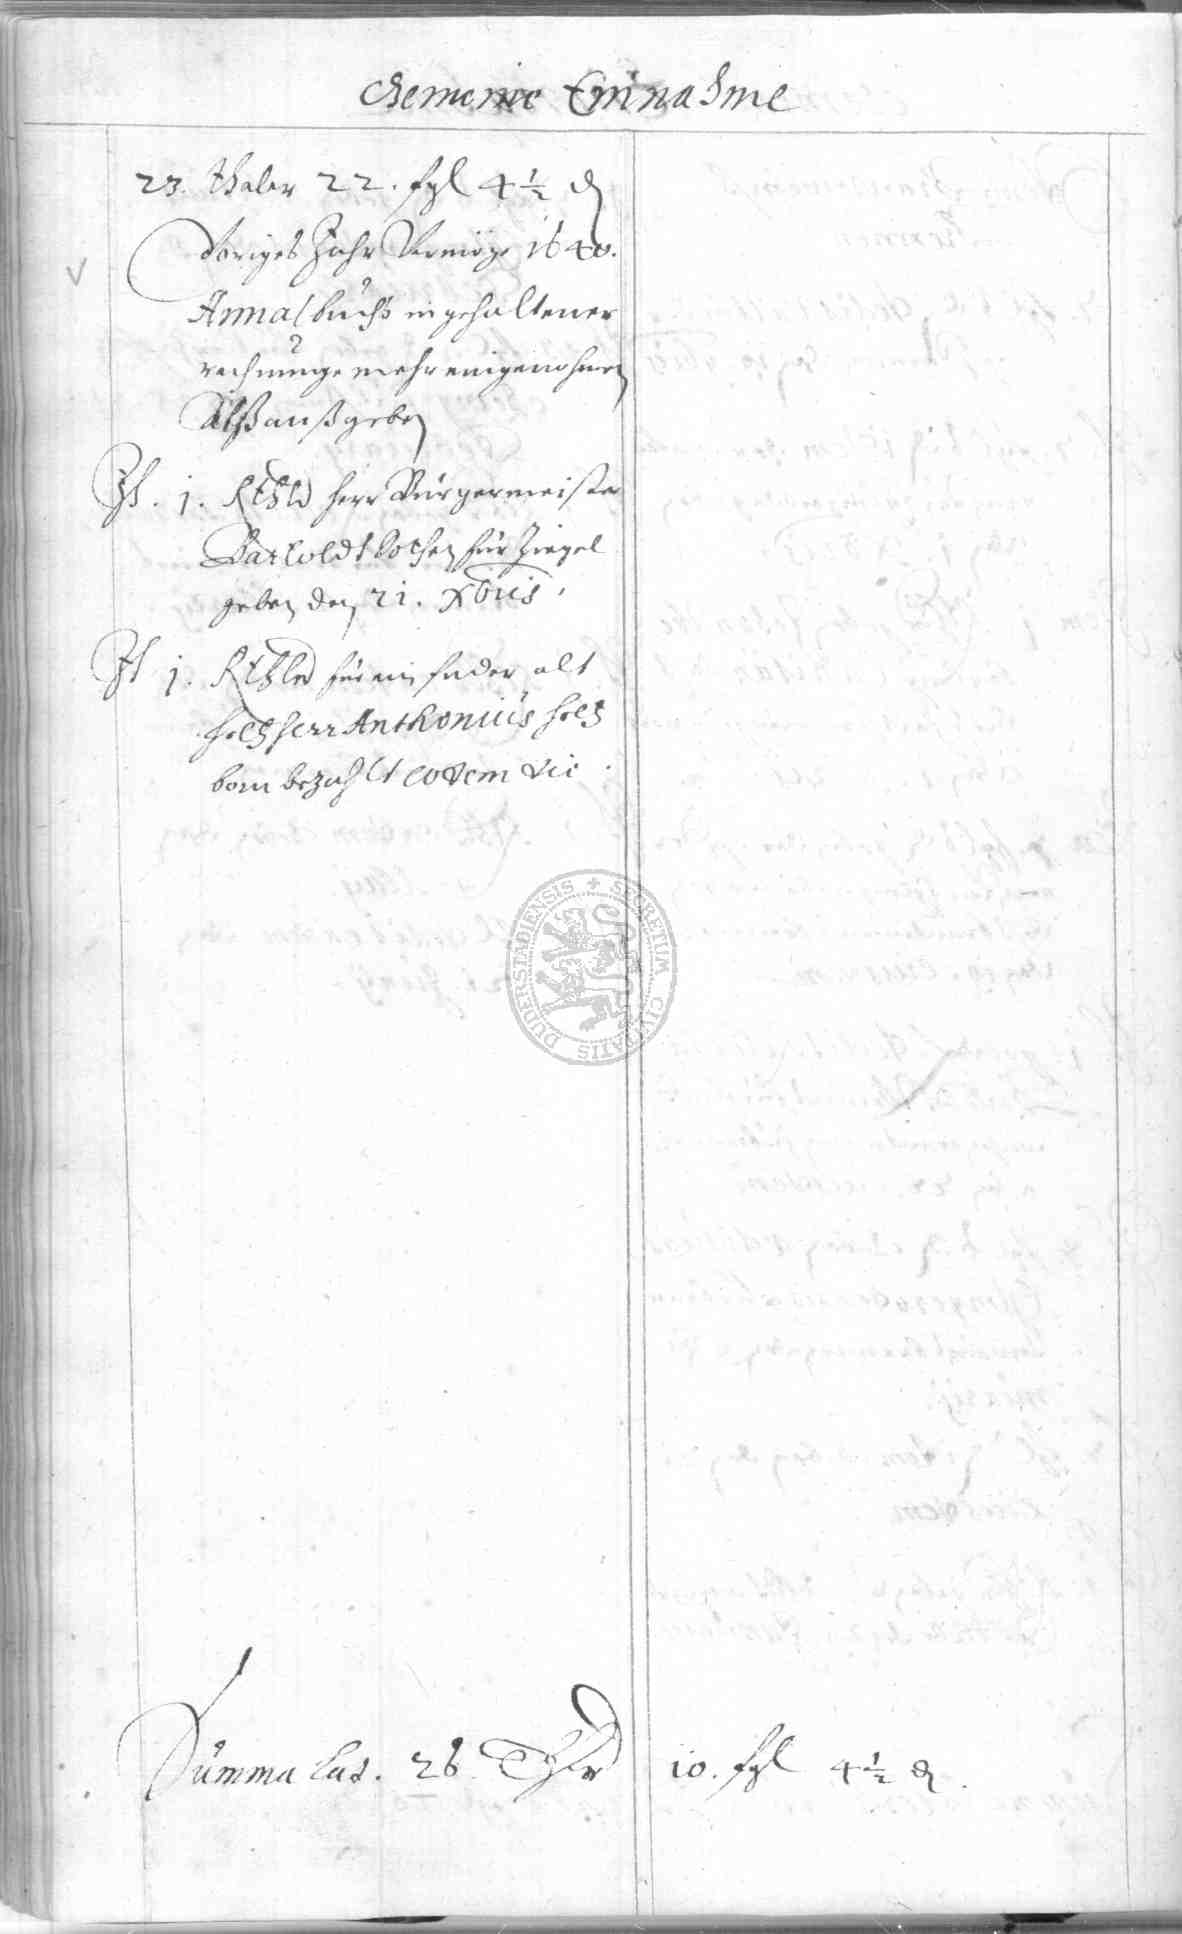 Gemeine Einnahme
23. thaler 22. sgl 4½ d
Voriges Jahr Vermöge 1640.
Annalbuchs ingehaltener
rechnunge mehr eingenohmen
Alß außgeben
It. 1. Rthlr herr Bürgermeister
Bartoldt für Ziegel
geben den 21. Xbris.
It 1. Rthlr für ein fuder alt
holtz herr Anthonius Holtz
born bezahlt eodem die.
Summa Lat. 26 Thlr 10. sgl 4½ d.
SECRETUM CIVITATIS DUDERSTADIENSIS